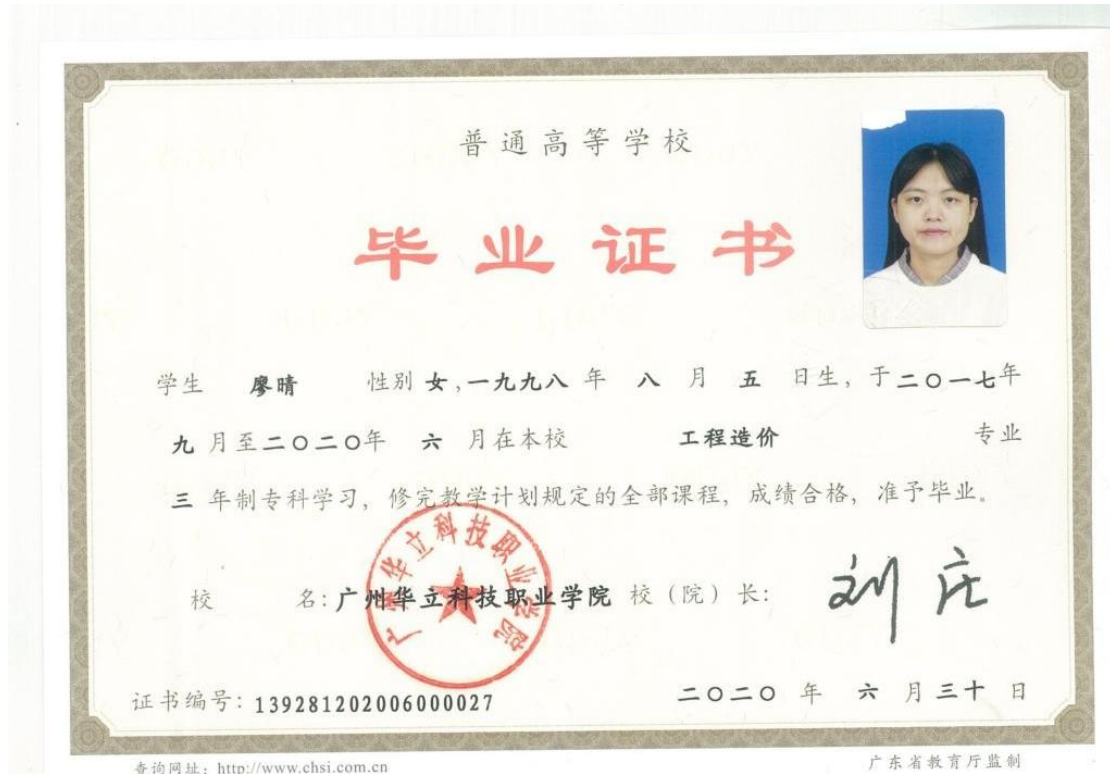 普通高等学校
毕业证书
学生 廖晴 性别 女,一九九八 年 八 月 五 日生, 于二〇一七年
九 月至二〇二〇年 六 月在本校 工程造价 专业
三 年制专科学习, 修完教学计划规定的全部课程, 成绩合格, 准予毕业。
广州华立科技职业学院
校 名: 广州华立科技职业学院 校（院）长: 刘庄
证书编号: 139281202006000027 二〇二〇 年 六 月 三十 日
查询网址: http://www.chsi.com.cn 广东省教育厅监制